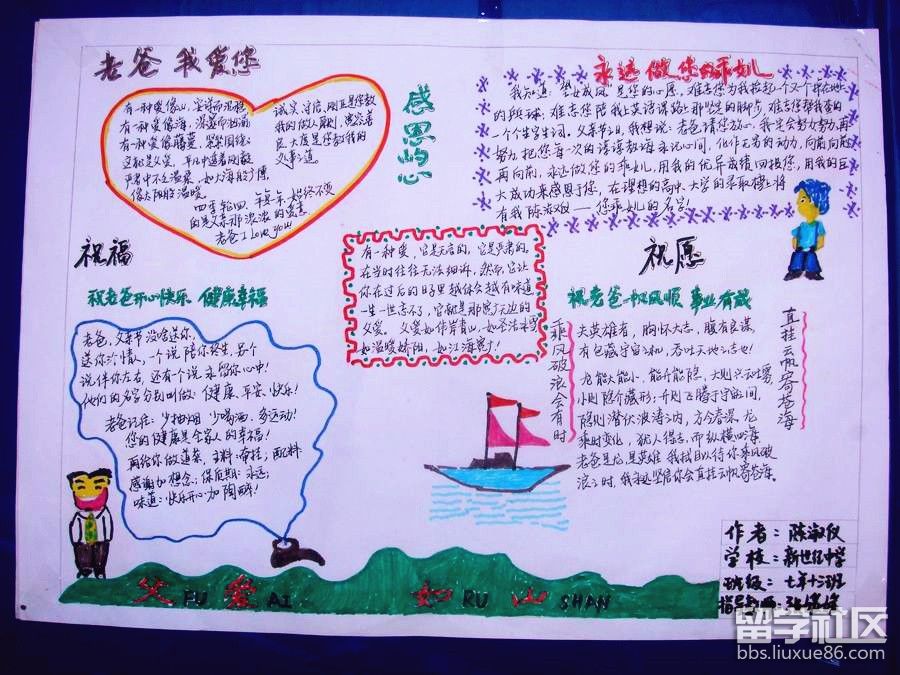 老爸 我爱您
有一种爱像山，
有一种爱像海，
有一种爱像藤蔓，
这就是父爱，平凡中透着风范
严肃中不乏温柔，如大海般广博
像太阳般温暖
诚实，守信，刚正是您教
我的做人原则；宽容善
良，大度是您教我的
父事之道。
四季轮回，年复一年，始终不变
的是父亲那浓浓的爱意
老爸 I Love you
感恩的心
永远做您的乖女儿
我知道：望女成凤是您的心愿，难忘您为我拾起一个又一个
的球；难忘您陪我上英语课路上那坚定的脚步，难忘您帮我
一个个生字生词，父亲节之日，我想说：老爸请您放心，我定会努力努力再
努力，把您每一次的谆谆教诲永记心间，化作无穷的动力，向前向前
再向前，永远做您的乖女儿，用我的优异成绩回报您，用我的巨
大成功来感恩于您，在理想的高中、大学的录取榜上将
有我陈淑仪——您乖女儿的名字！
祝福
祝老爸开心快乐 健康幸福
老爸，父亲节没啥送你，
送你个情人，一个说陪你终生，另个
说伴你左右，还有个说永留你心中！
他们的名字分别叫做：健康，平安，快乐！
老爸记住：少抽烟 少喝酒，多运动！
您的健康是全家人的幸福！
再给你做道菜，主料：牵挂，配料：
感谢加想念；保质期：永远；
味道：快乐开心加陶醉！
有一种爱，它是无言的，它是严肃的，
在当时往往无法细诉，然而，它让
你在过后的日子里越体会越有味道
一生一世忘不了，它就是那宽广无边的
父爱。 父爱如伟岸青山，如圣洁冰雪
如温暖娇阳，如江海宽广
祝愿
祝老爸一帆风顺 事业有成
乘风破浪会有时
夫英雄者，胸怀大志，腹有良谋，
有包藏宇宙之机，吞吐天地之志也！
龙能大能小，能升能隐，大则兴云吐雾，
小则隐介藏形；升则飞腾于宇宙间，
隐则潜伏波涛之内，方今春深，龙
乘时变化，犹人得志，而纵横四海
老爸是龙，是英雄，我拭目以待你乘风破
浪之时，我永远坚信你会直挂云帆寄苍海。
直挂云帆寄苍海
父 FU 爱 AI 如 RU 山 SHAN
作者：陈淑仪
学校：新世纪中学
班级：七年十二班
指导教师
留学社区
bbs.liuxue86.com